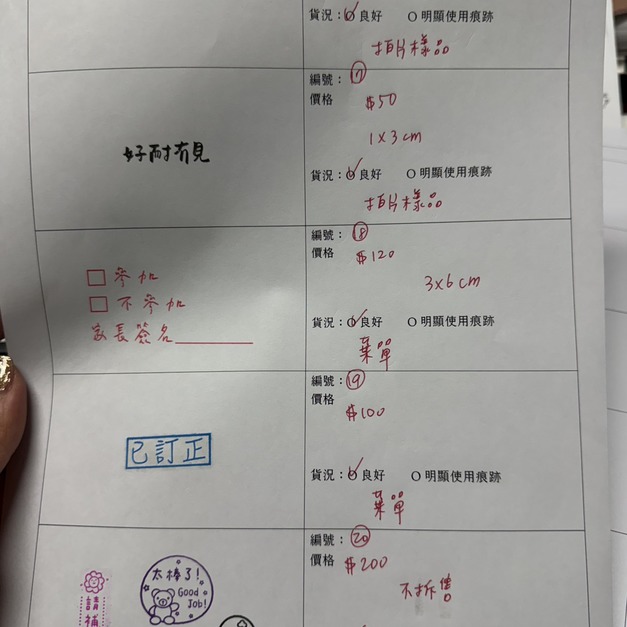 貨況：O 良好 O 明顯使用痕跡
拍片樣品
好耐冇見
編號：17
價格
$50
1x3cm
貨況：O 良好 O 明顯使用痕跡
拍片樣品
□ 參加
□ 不參加
家長簽名________
編號：18
價格
$120
3x6cm
貨況：O 良好 O 明顯使用痕跡
葉單
已訂正
編號：19
價格
$100
貨況：O 良好 O 明顯使用痕跡
葉單
請補
太棒了!
Good
Job!
編號：20
價格
$200
不拆售